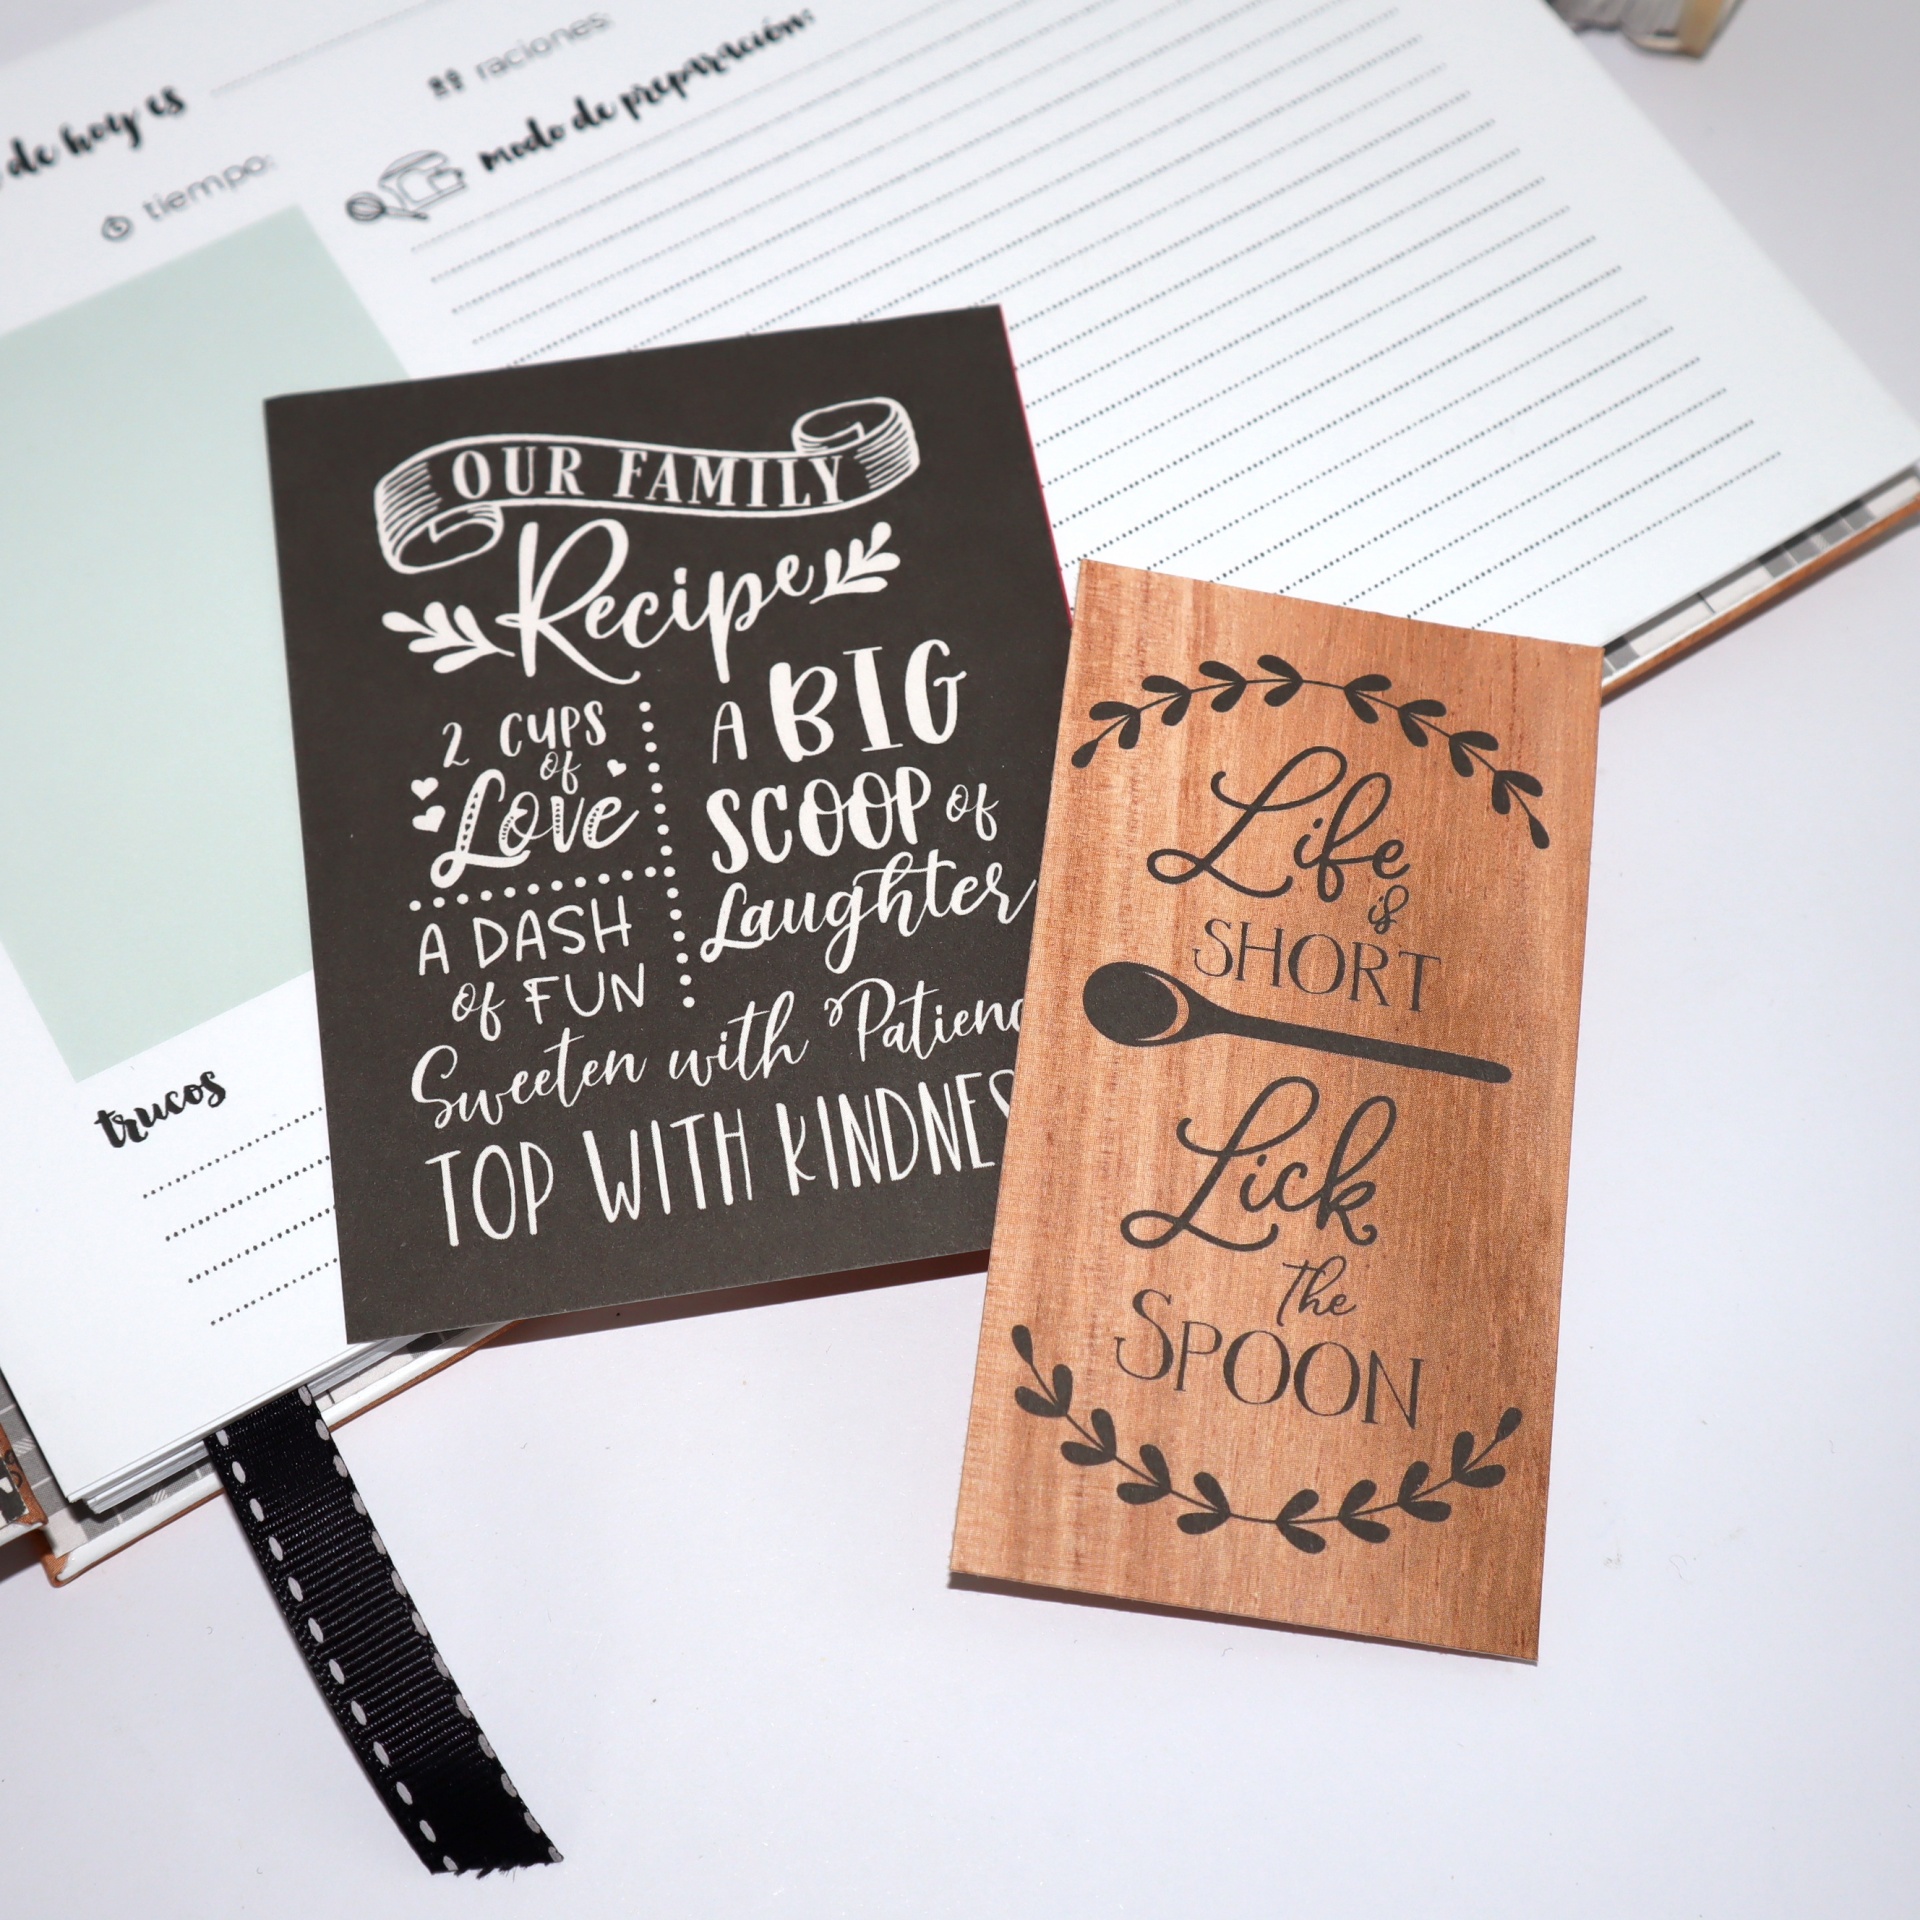 de hoy es
raciones:
tiempo:
modo de preparación:
trucos
OUR FAMILY
Recipe
2 CUPS
of
Love
A DASH
of FUN
A BIG
SCOOP of
Laughter
Sweeten with Patienc
TOP WITH KINDNES
Life
is
SHORT
Lick
The
SPOON